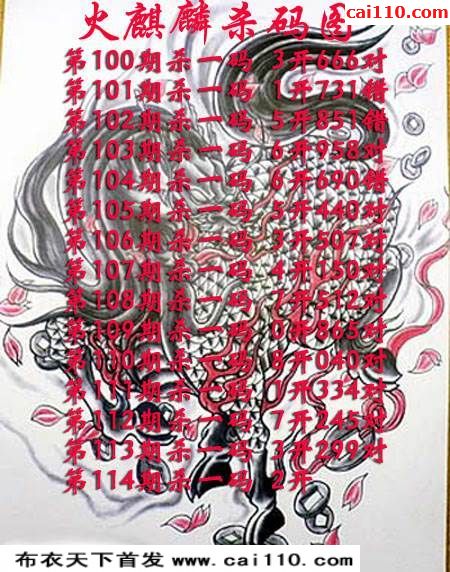 cai110.com
火麒麟杀码图
第100期杀一码 3开666对
第101期杀一码 1开731错
第102期杀一码 5开851错
第103期杀一码 6开958对
第104期杀一码 6开690错
第105期杀一码 5开440对
第106期杀一码 3开507对
第107期杀一码 4开150对
第108期杀一码 7开512对
第109期杀一码 0开865对
第110期杀一码 8开040对
第111期杀一码 1开334对
第112期杀一码 7开245对
第113期杀一码 3开299对
第114期杀一码 2开
布衣天下首发 www.cai110.com